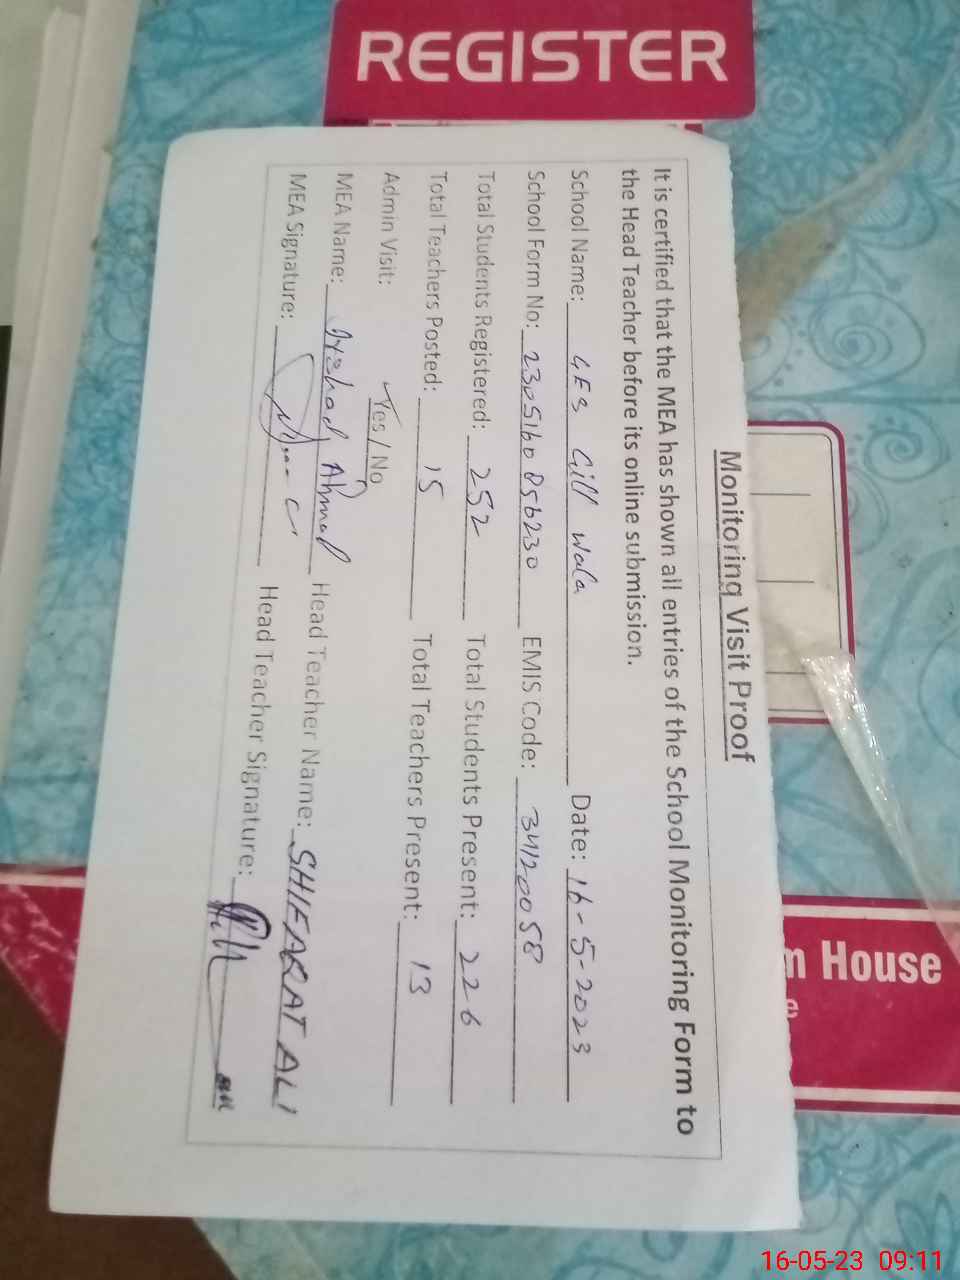 REGISTER
Monitoring Visit Proof
It is certified that the MEA has shown all entries of the School Monitoring Form to
the Head Teacher before its online submission.
School Name: GES Gill Wala Date: 16-5-2023
School Form No: 230516085b230 EMIS Code: 34120058
Total Students Registered: 252 Total Students Present: 226
Total Teachers Posted: 15 Total Teachers Present: 13
Admin Visit: Yes / No
MEA Name: Irshad Ahmad Head Teacher Name: SHIFARAT ALI
MEA Signature: Head Teacher Signature:
House
16-05-23 09:11